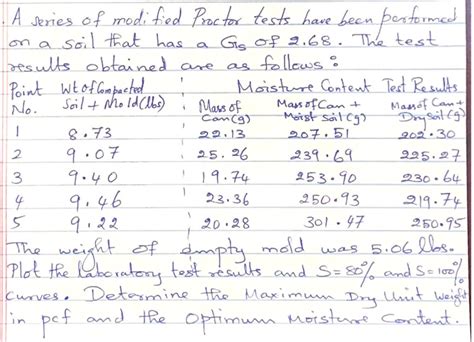 A series of modified Proctor tests have been performed
on a soil that has a Gs of 2.68. The test
results obtained are as follows:
Point Wt of Compacted Moisture Content Test Results
No. Soil + Mold (lbs) Mass of Can (g) Mass of Can + Moist Soil (g) Mass of Can + Dry Soil (g)
1 8.73 22.13 207.51 202.30
2 9.07 25.26 239.69 225.27
3 9.40 19.74 253.90 230.64
4 9.46 23.36 250.93 219.74
5 9.22 20.28 301.47 250.95
The weight of empty mold was 5.06 lbs.
Plot the laboratory test results and S=80% and S=100%
curves. Determine the Maximum Dry Unit Weight
in pcf and the Optimum Moisture Content.